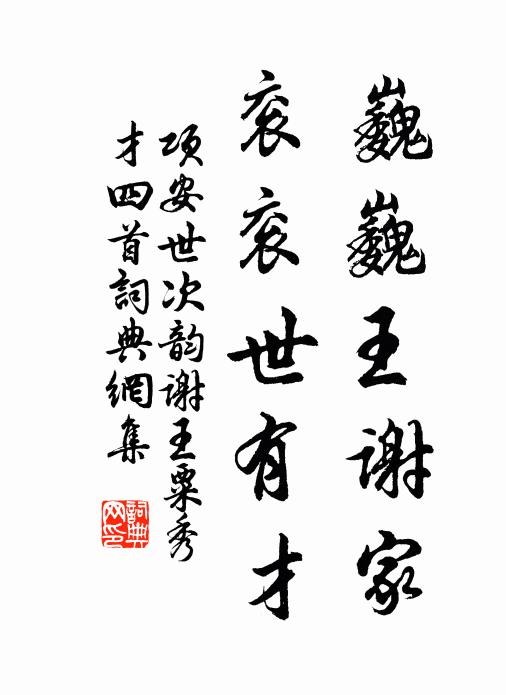 巍巍王谢家
衮衮世有才
项安世次韵谢王粟秀
才四首詞典網集
詞典网印